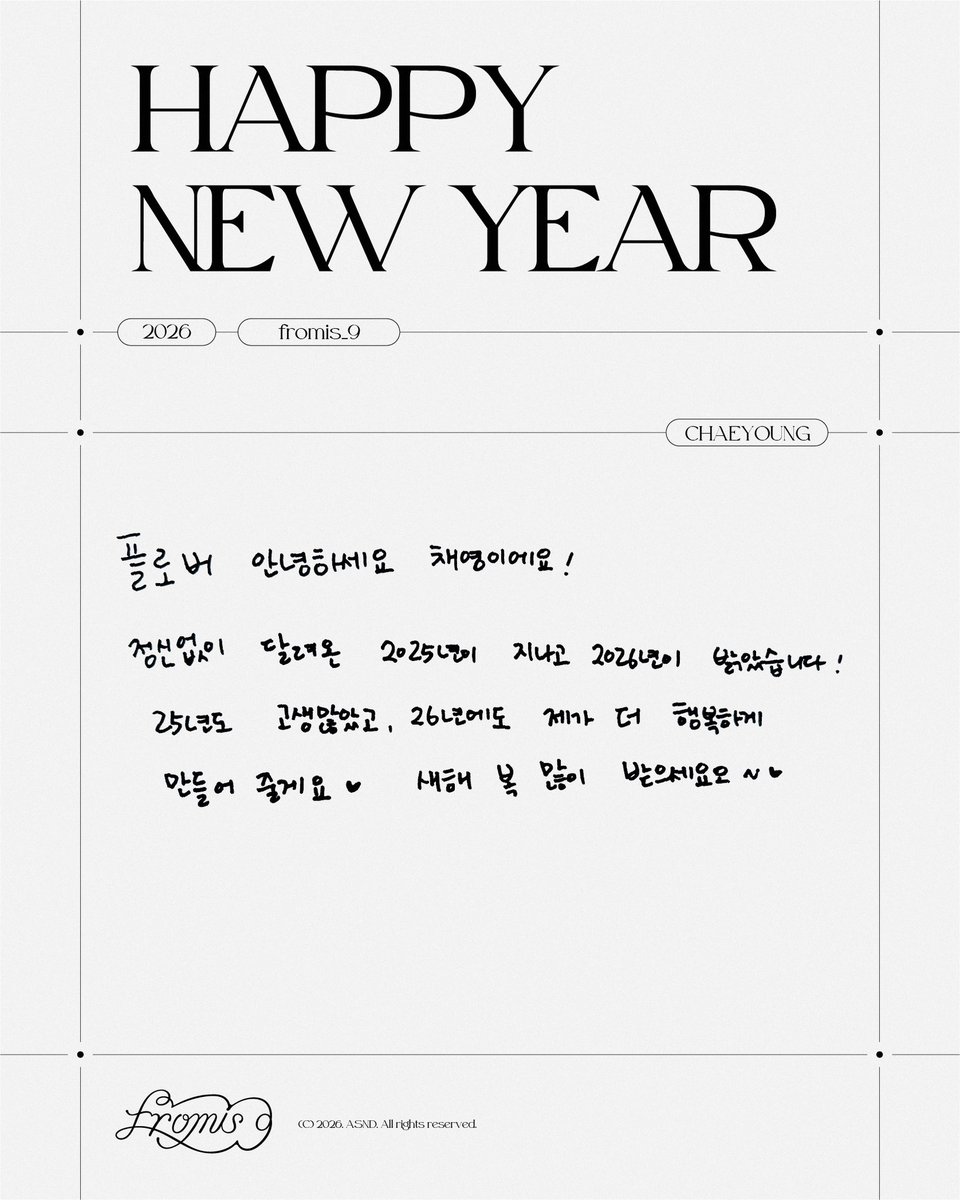 HAPPY
NEW YEAR
2026 fromis_9
CHAEYOUNG
플로버 안녕하세요 채영이에요!
정신없이 달려온 2025년이 지나고 2026년이 밝았습니다!
25년도 고생많았고, 26년에도 제가 더 행복하게
만들어 줄게요♥ 새해 복 많이 받으세요오~♥
fromis 9 (C) 2026. ASND. All rights reserved.